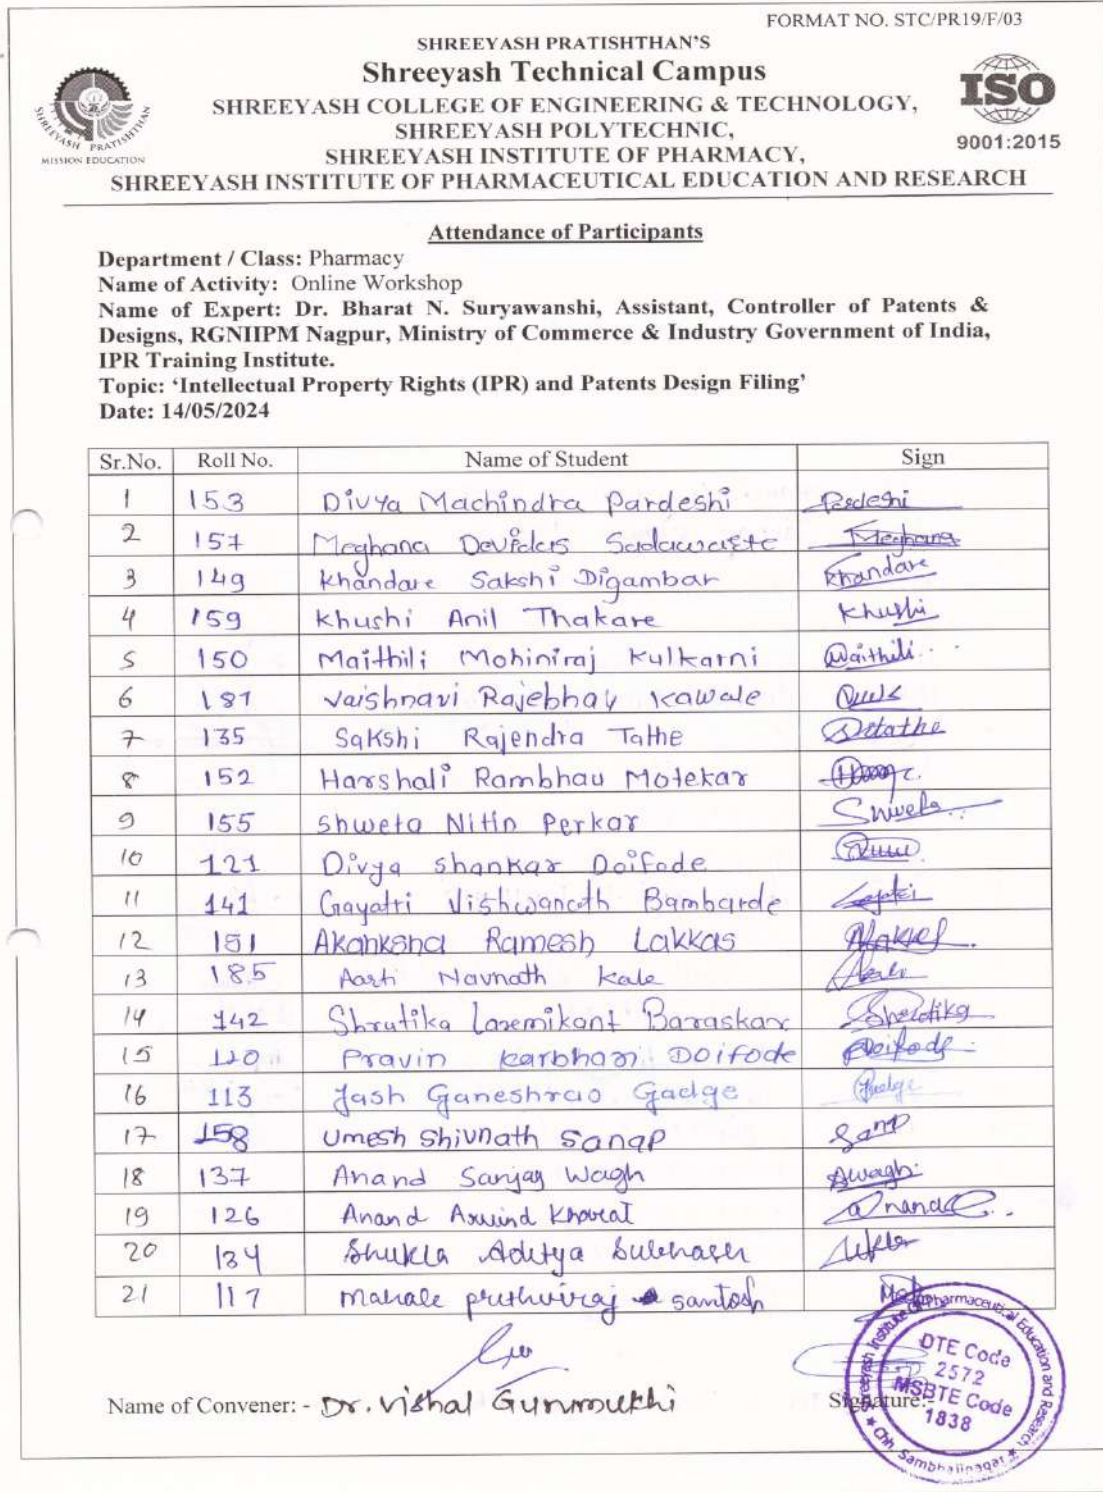 FORMAT NO. STC/PR19/F/03
SHREEYASH PRATISHTHAN'S
Shreeyash Technical Campus
SHREEYASH COLLEGE OF ENGINEERING & TECHNOLOGY,
SHREEYASH POLYTECHNIC,
SHREEYASH INSTITUTE OF PHARMACY,
SHREEYASH INSTITUTE OF PHARMACEUTICAL EDUCATION AND RESEARCH
SHREEYASH PRATISHTHAN
MISSION EDUCATION
ISO
9001:2015
Attendance of Participants
Department / Class: Pharmacy
Name of Activity: Online Workshop
Name of Expert: Dr. Bharat N. Suryawanshi, Assistant, Controller of Patents &
Designs, RGNIIPM Nagpur, Ministry of Commerce & Industry Government of India,
IPR Training Institute.
Topic: 'Intellectual Property Rights (IPR) and Patents Design Filing'
Date: 14/05/2024
Sr.No. Roll No. Name of Student Sign
1 153 Divya Machindra Pardeshi Pardeshi
2 157 Meghana Devidas Sadawarte Meghana
3 149 Khandare Sakshi Digambar Khandare
4 159 Khushi Anil Thakare Khushi
5 150 Maithili Mohiniraj Kulkarni Maithili
6 181 Vaishnavi Rajebhau Kawale
7 135 Sakshi Rajendra Tathe
8 152 Harshali Rambhau Motekar
9 155 Shweta Nitin Perkar Shweta
10 121 Divya Shankar Doifode
11 141 Gayatri Vishwanath Bambarde
12 151 Akanksha Ramesh Lakkas
13 185 Aarti Navnath Kale
14 142 Shrutika Laxmikant Baraskar Shrutika
15 120 Pravin Karbhari Doifode Doifode
16 113 Yash Ganeshrao Gadge Gadge
17 158 Umesh Shivnath Sanap Sanap
18 137 Anand Sanjay Wagh Awagh
19 126 Anand Arvind Kharat Anand
20 134 Shukla Aditya Subhash
21 117 Mahale pruthviraj santosh
Name of Convener: - Dr. Vishal Gunmukhi Signature:-
Shreeyash Institute Of Pharmaceutical Education and Research
DTE Code
2572
MSBTE Code
1838
Chh. Sambhajinagar